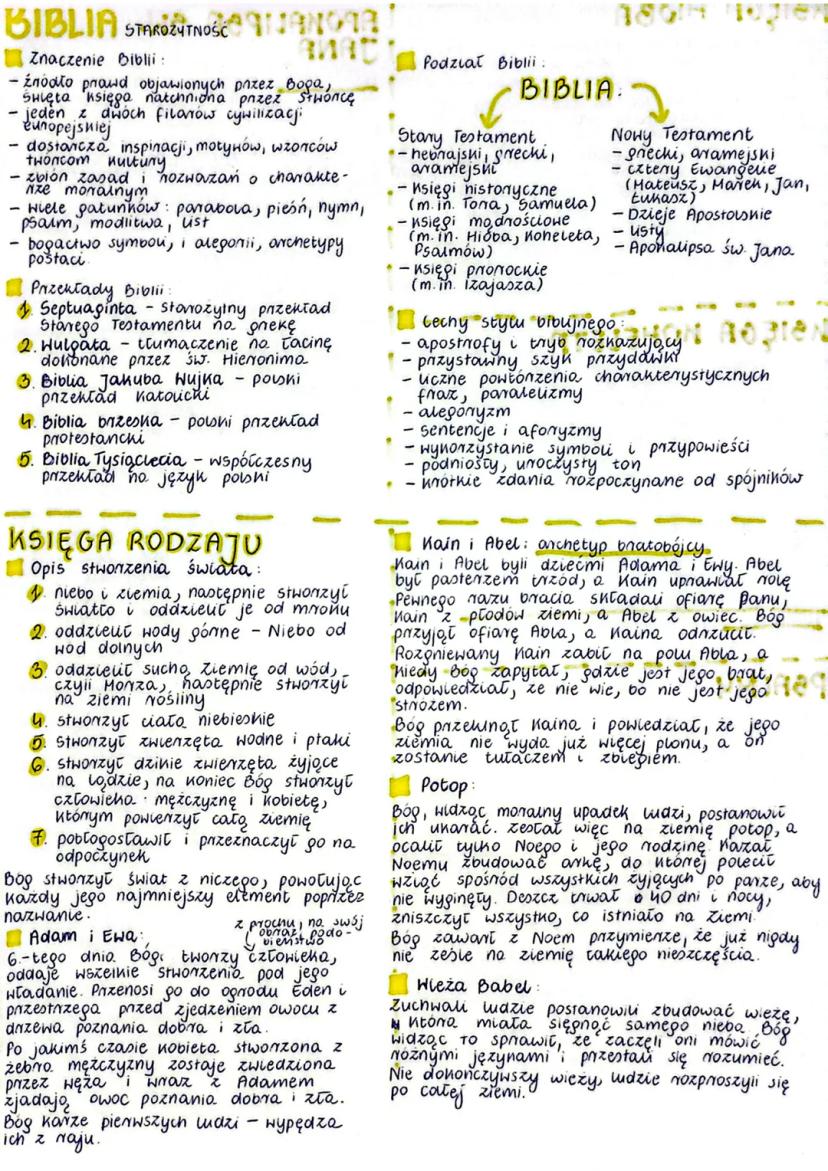 BIBLIA STAROŻYTNOŚĆ
Znaczenie Biblii:
- źródło prawd objawionych przez Boga,
święta księga natchniona przez Stwórcę
- jeden z dwóch filarów cywilizacji
europejskiej
- dostarcza inspiracji, motywów, wzorców
twórcom kultury
- zbiór zasad i rozważań o charakte-
rze moralnym
- wiele gatunków: parabola, pieśń, hymn,
psalm, modlitwa, list
- bogactwo symboli, i alegorii, archetypy
postaci
Przekłady Biblii:
1. Septuaginta - starożytny przekład
Starego Testamentu na grekę
2. Wulgata - tłumaczenie na łacinę
dokonane przez św. Hieronima
3. Biblia Jakuba Wujka - polski
przekład katolicki
4. Biblia brzeska - polski przekład
protestancki
5. Biblia Tysiąclecia - współczesny
przekład na język polski
Podział Biblii:
BIBLIA:
Stary Testament
- hebrajski, grecki,
aramejski
- księgi historyczne
(m.in. Tora, Samuela)
- księgi mądrościowe
(m.in. Hioba, Koheleta,
Psalmów)
- księgi prorockie
(m.in. Izajasza)
Nowy Testament
- grecki, aramejski
- cztery Ewangelie
(Mateusz, Marek, Jan,
Łukasz)
- Dzieje Apostolskie
- listy
- Apokalipsa św. Jana
Cechy stylu biblijnego:
- apostrofy i tryb rozkazujący
- przystawny szyk przydawki
- liczne powtórzenia charakterystycznych
fraz, paralelizmy
- alegoryzm
- sentencje i aforyzmy
- wykorzystanie symboli i przypowieści
- podniosły, uroczysty ton
- krótkie zdania rozpoczynane od spójników
KSIĘGA RODZAJU
Opis stworzenia świata:
1. niebo i ziemia, następnie stworzył
światło i oddzielił je od mroku
2. oddzielił wody górne - Niebo od
wód dolnych
3. oddzielił suchą Ziemię od wód,
czyli Morza, następnie stworzył
na ziemi rośliny
4. stworzył ciała niebieskie
5. stworzył zwierzęta wodne i ptaki
6. stworzył dzikie zwierzęta żyjące
na lądzie, na koniec Bóg stworzył
człowieka - mężczyznę i kobietę,
którym powierzył całą ziemię
7. pobłogosławił i przeznaczył go na
odpoczynek
Bóg stworzył świat z niczego, powołując
każdy jego najmniejszy element poprzez
nazwanie.
Adam i Ewa:
z prochu, na swój
obraz podo-
bieństwo
6.-tego dnia Bóg tworzy człowieka,
oddaje wszelkie stworzenia pod jego
władanie. Przenosi go do ogrodu Eden i
przestrzega przed zjedzeniem owocu z
drzewa poznania dobra i zła.
Po jakimś czasie kobieta stworzona z
żebra mężczyzny zostaje zwiedziona
przez węża i wraz z Adamem
zjadają owoc poznania dobra i zła.
Bóg karze pierwszych ludzi - wypędza
ich z raju.
Kain i Abel: archetyp bratobójcy
Kain i Abel byli dziećmi Adama i Ewy. Abel
był pasterzem trzód, a Kain uprawiał rolę
Pewnego razu bracia składali ofiarę Panu,
Kain z płodów ziemi, a Abel z owiec. Bóg
przyjął ofiarę Abla, a Kaina odrzucił.
Rozgniewany Kain zabił na polu Abla, a
kiedy Bóg zapytał, gdzie jest jego brat,
odpowiedział, że nie wie, bo nie jest jego
stróżem.
Bóg przeklnął Kaina i powiedział, że jego
ziemia nie wyda już więcej plonu, a on
zostanie tułaczem i zbiegiem.
Potop:
Bóg, widząc moralny upadek ludzi, postanowił
ich ukarać. Zesłał więc na ziemię potop, a
ocalił tylko Noego i jego rodzinę. Kazał
Noemu zbudować arkę, do której polecił
wziąć spośród wszystkich żyjących po parze, aby
nie wyginęły. Deszcz trwał 40 dni i nocy,
zniszczył wszystko, co istniało na ziemi.
Bóg zawarł z Noem przymierze, że już nigdy
nie ześle na ziemię takiego nieszczęścia.
Wieża Babel:
Zuchwali ludzie postanowili zbudować wieżę,
która miała sięgnąć samego nieba. Bóg
widząc to sprawił, że zaczęli oni mówić
różnymi językami i przestali się rozumieć.
Nie dokończywszy wieży, ludzie rozproszyli się
po całej ziemi.